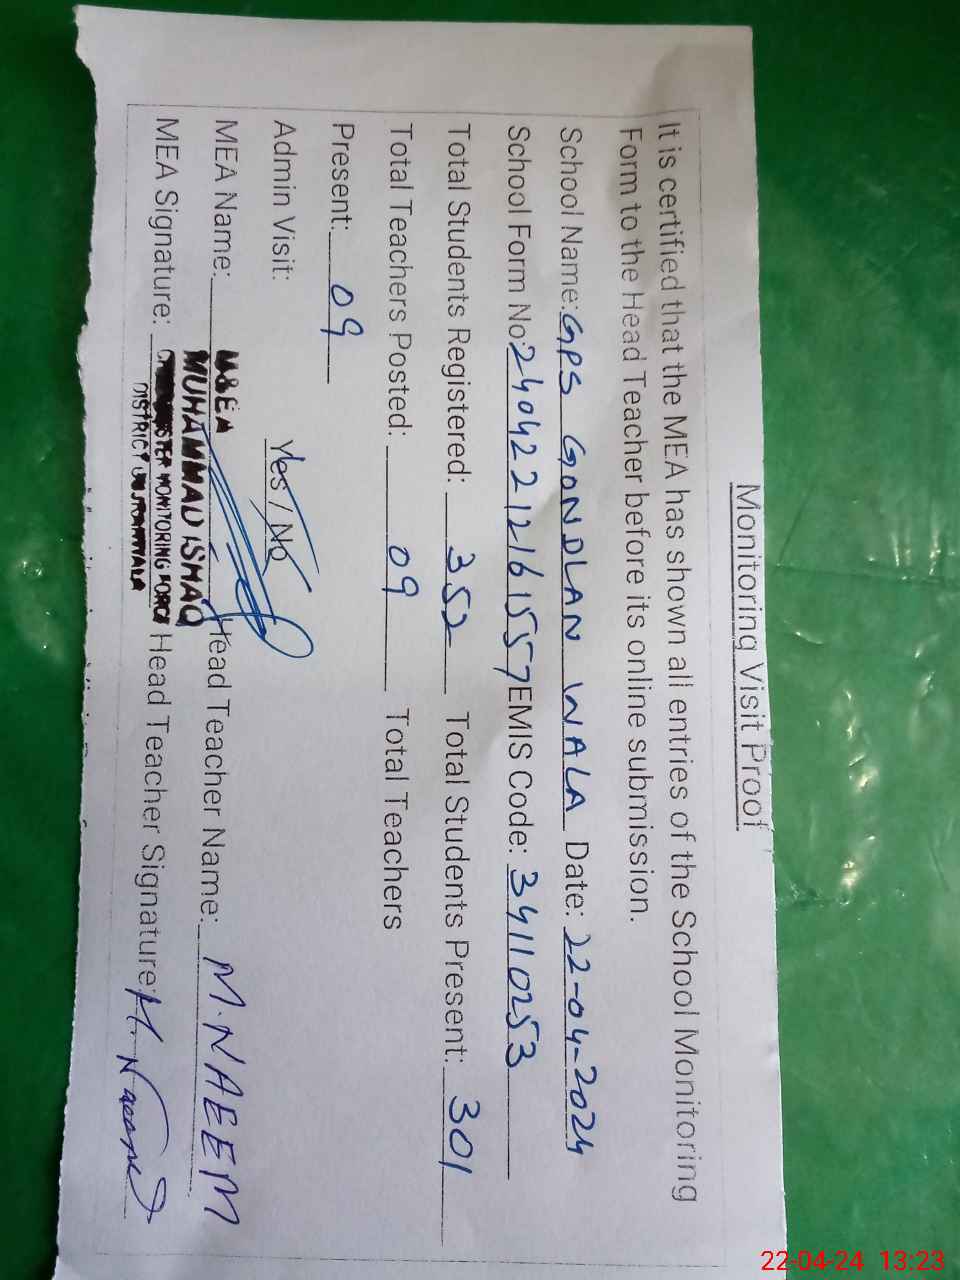 Monitoring Visit Proof
It is certified that the MEA has shown all entries of the School Monitoring
Form to the Head Teacher before its online submission.
School Name: GPS GONDLAN WALA Date: 22-04-2024
School Form No: 24042212161557 EMIS Code: 34110253
Total Students Registered: 352 Total Students Present: 301
Total Teachers Posted: 09 Total Teachers
Present: 09
Admin Visit: Yes / No
MEA Name: Head Teacher Name: M.NAEEM
M&EA
MUHAMMAD ISHAQ
MEA Signature: Head Teacher Signature: M. Naeem
MONITORING FORCE
DISTRICT
22-04-24 13:23